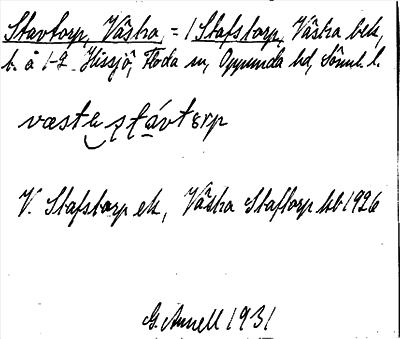 Stavtorp, Västra, = 1 Stafstorp, Västra bek,
b. å 1-2 Hissjö, Floda sn, Oppunda hd, Söml. l.
væste ștávtorp
V. Stafstorp ek, Västra Staftorp kb 1926
G. Annell 1931